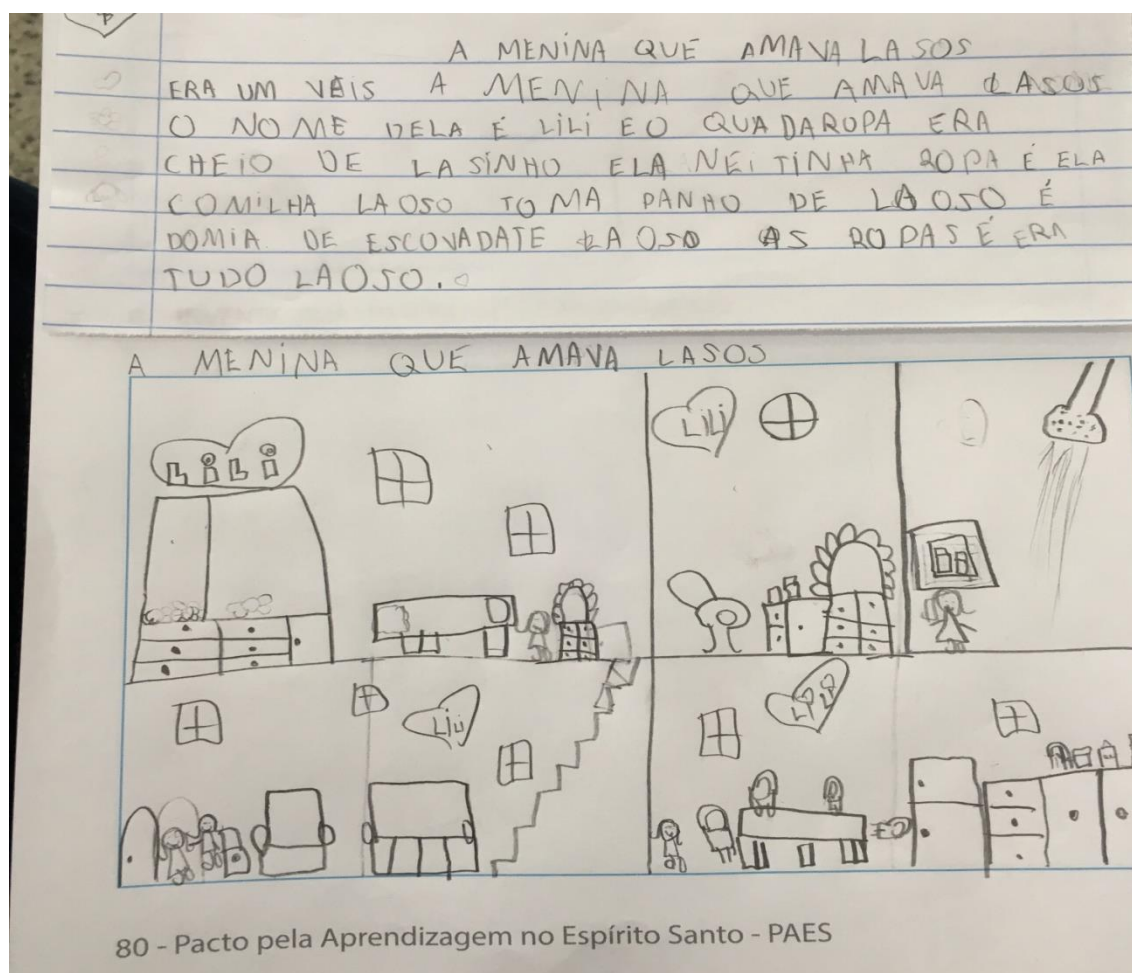 A MENINA QUE AMAVA LASOS
ERA UM VEIS A MENINA QUE AMAVA LASOS
O NOME DELA É LILI E O QUADAROPA ERA
CHEIO DE LASINHO ELA NEITINHA ROPA É ELA
COMILHA LAOSO TOMA PANHO DE LAOSO É
DOMIA DE ESCOVADATE LAOSO AS ROPAS É ERA
TUDO LAOSO.
A MENINA QUE AMAVA LASOS
LILI
LILI
LILI
LILI
80 - Pacto pela Aprendizagem no Espírito Santo - PAES